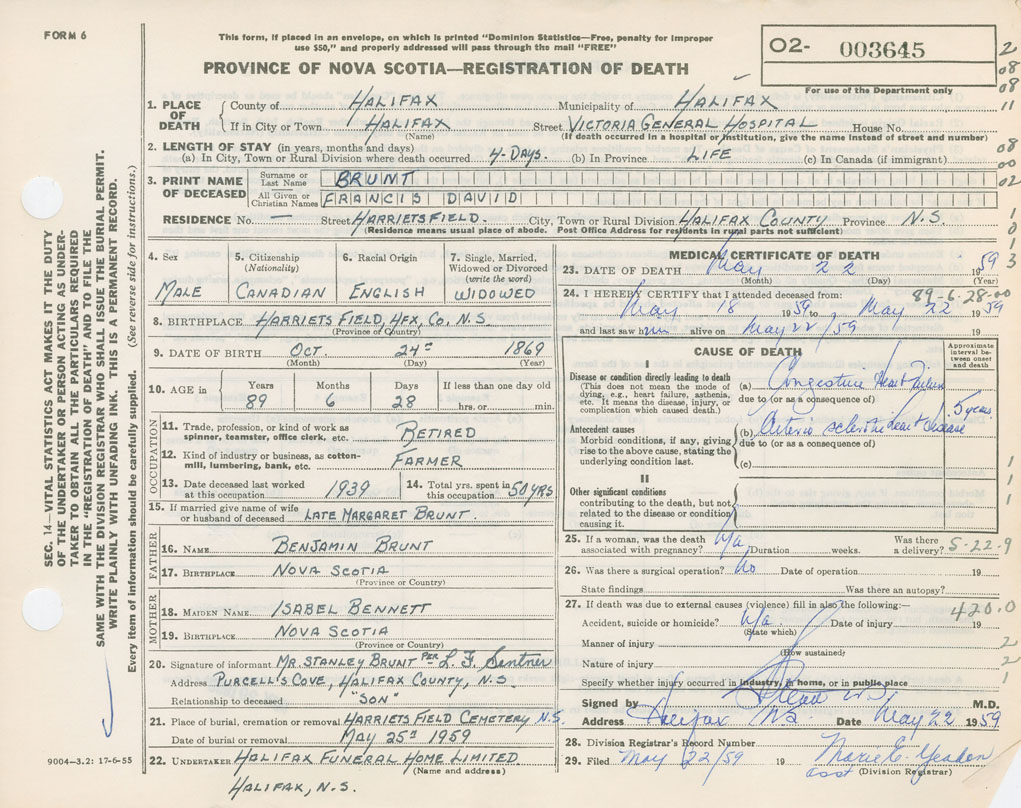 FORM 6
This form, if placed in an envelope, on which is printed "Dominion Statistics—Free, penalty for improper
use $50," and properly addressed will pass through the mail "FREE"
PROVINCE OF NOVA SCOTIA—REGISTRATION OF DEATH
O2- 003645
For use of the Department only
2
08
08
11
08
00
02
1
0
3
1. PLACE OF DEATH County of HALIFAX Municipality of HALIFAX
If in City or Town HALIFAX Street VICTORIA GENERAL HOSPITAL House No.
(Name) (If death occurred in a hospital or institution, give the name instead of street and number)
2. LENGTH OF STAY (in years, months and days)
(a) In City, Town or Rural Division where death occurred 4-DAYS. (b) In Province LIFE (c) In Canada (if immigrant)
3. PRINT NAME OF DECEASED Surname or Last Name BRUNT
All Given or Christian Names FRANCIS DAVID
RESIDENCE No. — Street HARRIETSFIELD. City, Town or Rural Division HALIFAX COUNTY Province N.S.
(Residence means usual place of abode. Post Office Address for residents in rural parts not sufficient)
4. Sex MALE
5. Citizenship (Nationality) CANADIAN
6. Racial Origin ENGLISH
7. Single, Married, Widowed or Divorced (write the word) WIDOWED
8. BIRTHPLACE HARRIETS FIELD, HFX, CO, N.S.
(Province or Country)
9. DATE OF BIRTH OCT. 24TH 1869
(Month) (Day) (Year)
10. AGE in Years 89 Months 6 Days 28 If less than one day old hrs. or min.
OCCUPATION
11. Trade, profession, or kind of work as spinner, teamster, office clerk, etc. RETIRED
12. Kind of industry or business, as cotton-mill, lumbering, bank, etc. FARMER
13. Date deceased last worked at this occupation 1939
14. Total yrs. spent in this occupation 50 YRS
15. If married give name of wife or husband of deceased LATE MARGARET BRUNT.
FATHER
16. NAME BENJAMIN BRUNT
17. BIRTHPLACE NOVA SCOTIA
(Province or Country)
MOTHER
18. MAIDEN NAME ISABEL BENNETT
19. BIRTHPLACE NOVA SCOTIA
(Province or Country)
20. Signature of informant MR. STANLEY BRUNT PER L. F. Santner
Address PURCELL'S COVE, HALIFAX COUNTY, N.S.
Relationship to deceased "SON"
21. Place of burial, cremation or removal HARRIETS FIELD CEMETERY N.S.
Date of burial or removal MAY 25TH 1959
22. UNDERTAKER HALIFAX FUNERAL HOME LIMITED
(Name and address)
HALIFAX, N.S.
MEDICAL CERTIFICATE OF DEATH
23. DATE OF DEATH May 22 1959
(Month) (Day) (Year)
89-6-28-00
24. I HEREBY CERTIFY that I attended deceased from:
May 18 1959 to May 22 1959
and last saw him alive on May 22/59 19
CAUSE OF DEATH
Approximate interval between onset and death
I
Disease or condition directly leading to death
(This does not mean the mode of dying, e.g., heart failure, asthenia, etc. It means the disease, injury, or complication which caused death.)
(a) Congestive Heart Failure
due to (or as a consequence of)
5 years
Antecedent causes
Morbid conditions, if any, giving rise to the above cause, stating the underlying condition last.
(b) Arteriosclerotic heart disease
due to (or as a consequence of)
(c)
II
Other significant conditions
contributing to the death, but not related to the disease or condition causing it.
1
1
1
25. If a woman, was the death associated with pregnancy? n/a Duration weeks. Was there a delivery? 5-22-9
26. Was there a surgical operation? No Date of operation 19
State findings Was there an autopsy?
27. If death was due to external causes (violence) fill in also the following:—
420.0
Accident, suicide or homicide? n/a. Date of injury 19
(State which)
Manner of injury 2
(How sustained)
Nature of injury 2
Specify whether injury occurred in industry, in home, or in public place 1
Signed by M.D.
Address Halifax NS. Date May 22 1959
28. Division Registrar's Record Number
29. Filed May 22/59 19 Marie E. Yeadon
asst (Division Registrar)
SEC. 14—VITAL STATISTICS ACT MAKES IT THE DUTY
OF THE UNDERTAKER OR PERSON ACTING AS UNDER-
TAKER TO OBTAIN ALL THE PARTICULARS REQUIRED
IN THE "REGISTRATION OF DEATH" AND TO FILE THE
SAME WITH THE DIVISION REGISTRAR WHO SHALL ISSUE THE BURIAL PERMIT.
WRITE PLAINLY WITH UNFADING INK. THIS IS A PERMANENT RECORD.
Every item of information should be carefully supplied. (See reverse side for instructions.)
9004—3.2: 17-6-55